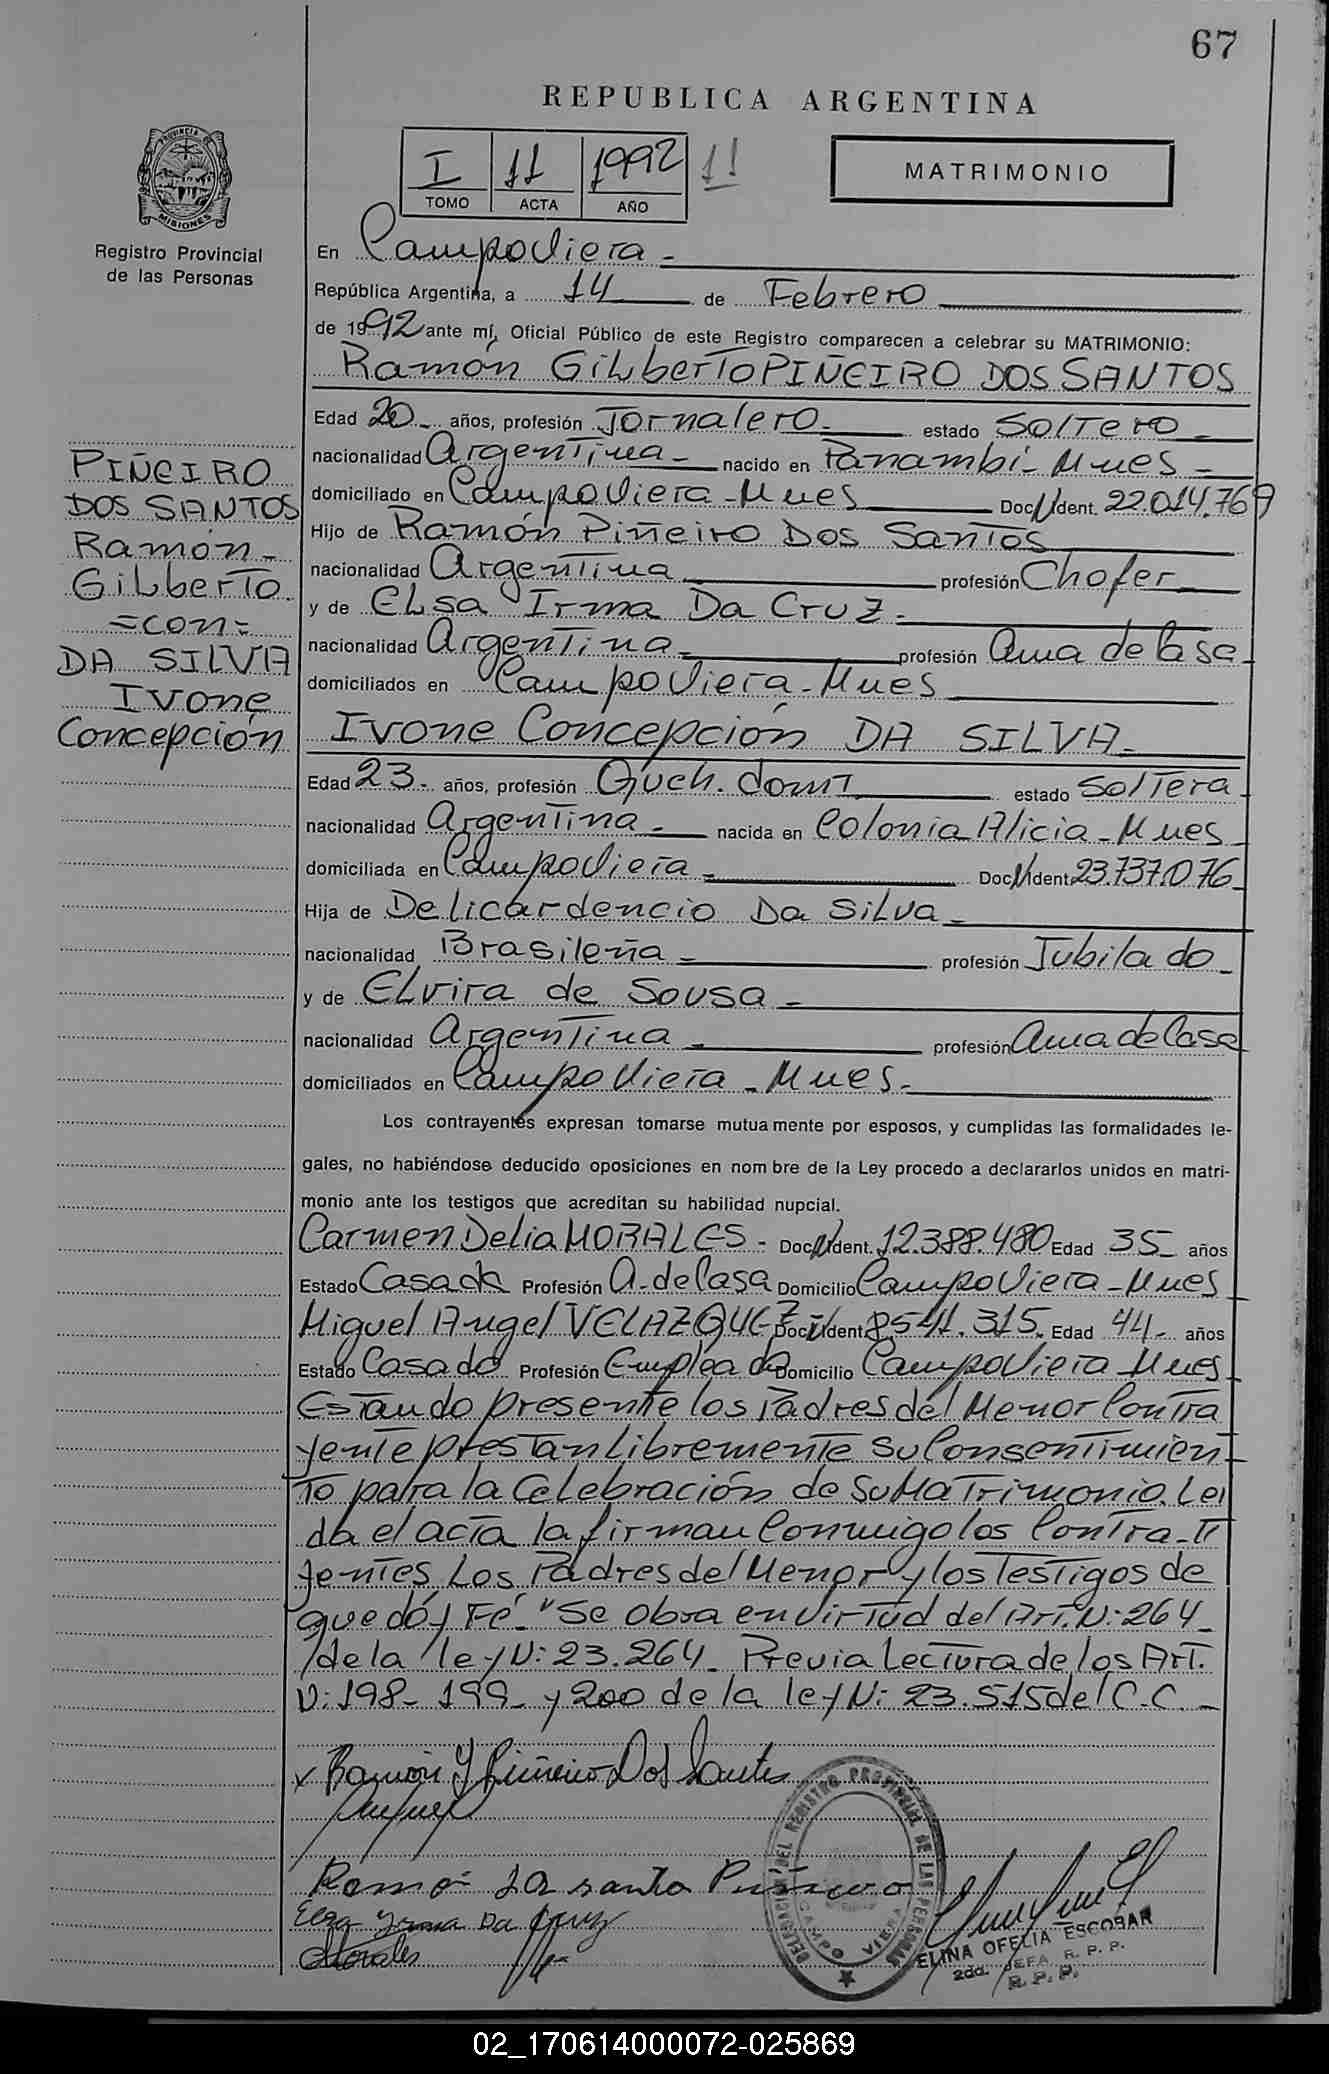 67
REPUBLICA ARGENTINA
I 11 1992 11
TOMO ACTA AÑO
MATRIMONIO
PROVINCIA DE MISIONES
Registro Provincial
de las Personas
En Campo Viera -
República Argentina, a 14 de Febrero
de 1992 ante mí, Oficial Público de este Registro comparecen a celebrar su MATRIMONIO:
Ramón Gilberto PIÑEIRO DOS SANTOS
Edad 20 - años, profesión Jornalero - estado Soltero -
nacionalidad Argentina - nacido en Panambi - Mnes -
domiciliado en Campo Viera - Mnes Doc. N Ident. 22.014.769
Hijo de Ramón Piñeiro Dos Santos
nacionalidad Argentina profesión Chofer
y de Elsa Irma Da Cruz -
nacionalidad Argentina - profesión Ama de Casa
domiciliados en Campo Viera - Mnes
PIÑEIRO
DOS SANTOS
Ramón -
Gilberto
=con=
DA SILVA
Ivone
Concepción
Ivone Concepción DA SILVA -
Edad 23 - años, profesión Queh. domt estado Soltera
nacionalidad Argentina - nacida en Colonia Alicia - Mnes
domiciliada en Campo Viera - Doc. N Ident 23.737.076
Hija de Delicardencio Da Silva -
nacionalidad Brasileña - profesión Jubilado -
y de Elvira de Sousa -
nacionalidad Argentina - profesión Ama de Casa
domiciliados en Campo Viera - Mnes -
Los contrayentes expresan tomarse mutuamente por esposos, y cumplidas las formalidades le-
gales, no habiéndose deducido oposiciones en nombre de la Ley procedo a declararlos unidos en matri-
monio ante los testigos que acreditan su habilidad nupcial.
Carmen Delia MORALES - Doc. N Ident. 12.388.480 Edad 35 - años
Estado Casada Profesión A. de Casa Domicilio Campo Viera - Mnes
Miguel Angel VELAZQUEZ Doc. N Ident 8.541.315. Edad 44 - años
Estado Casado Profesión Empleado Domicilio Campo Viera Mnes
Estando presente los Padres del Menor Contra
yente prestan libremente su Consentimien
to para la Celebración de su Matrimonio. Lei
da el acta la firman Conmigo los Contra-
yentes, Los Padres del Menor y los Testigos de
que doy Fé. "Se obra en virtud del Art. N: 264
de la ley N: 23.264 - Previa Lectura de los Art.
N: 198 - 199 - y 200 de la ley N: 23.515 del C.C. -
x Ramón G Piñeiro Dos Santos
Elsa Irma Da Cruz
Morales
DELEGACION DEL REGISTRO PROVINCIAL DE LAS PERSONAS
CAMPO VIERA
ELINA OFELIA ESCOBAR
2da. JEFA R. P. P.
R. P. P.
02_170614000072-025869